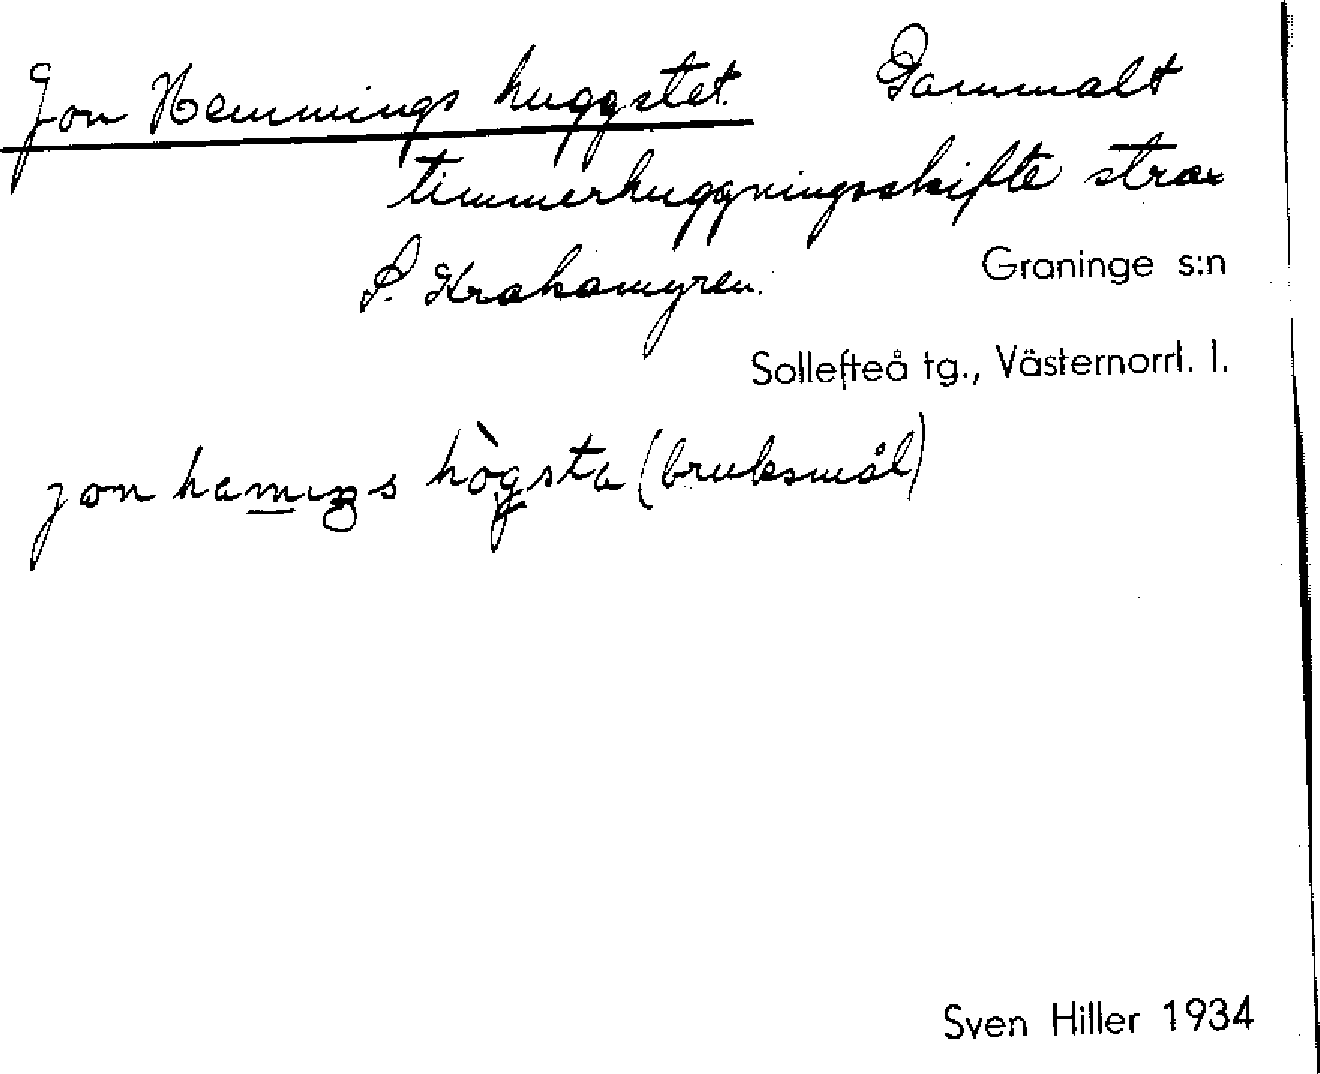 Jon Hemmings huggstet. Gammalt
timmerhuggningsskifte strax
S. Krakamyren.
Graninge s:n
Sollefteå tg., Västernorrl. l.
jon hemiŋs hògsta (bruksmål)
Sven Hiller 1934